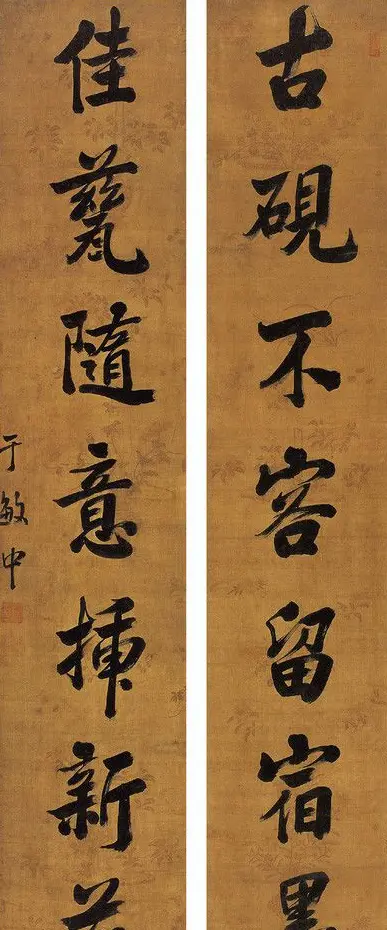 古硯不容留宿墨
佳甆隨意挿新花
于敏中